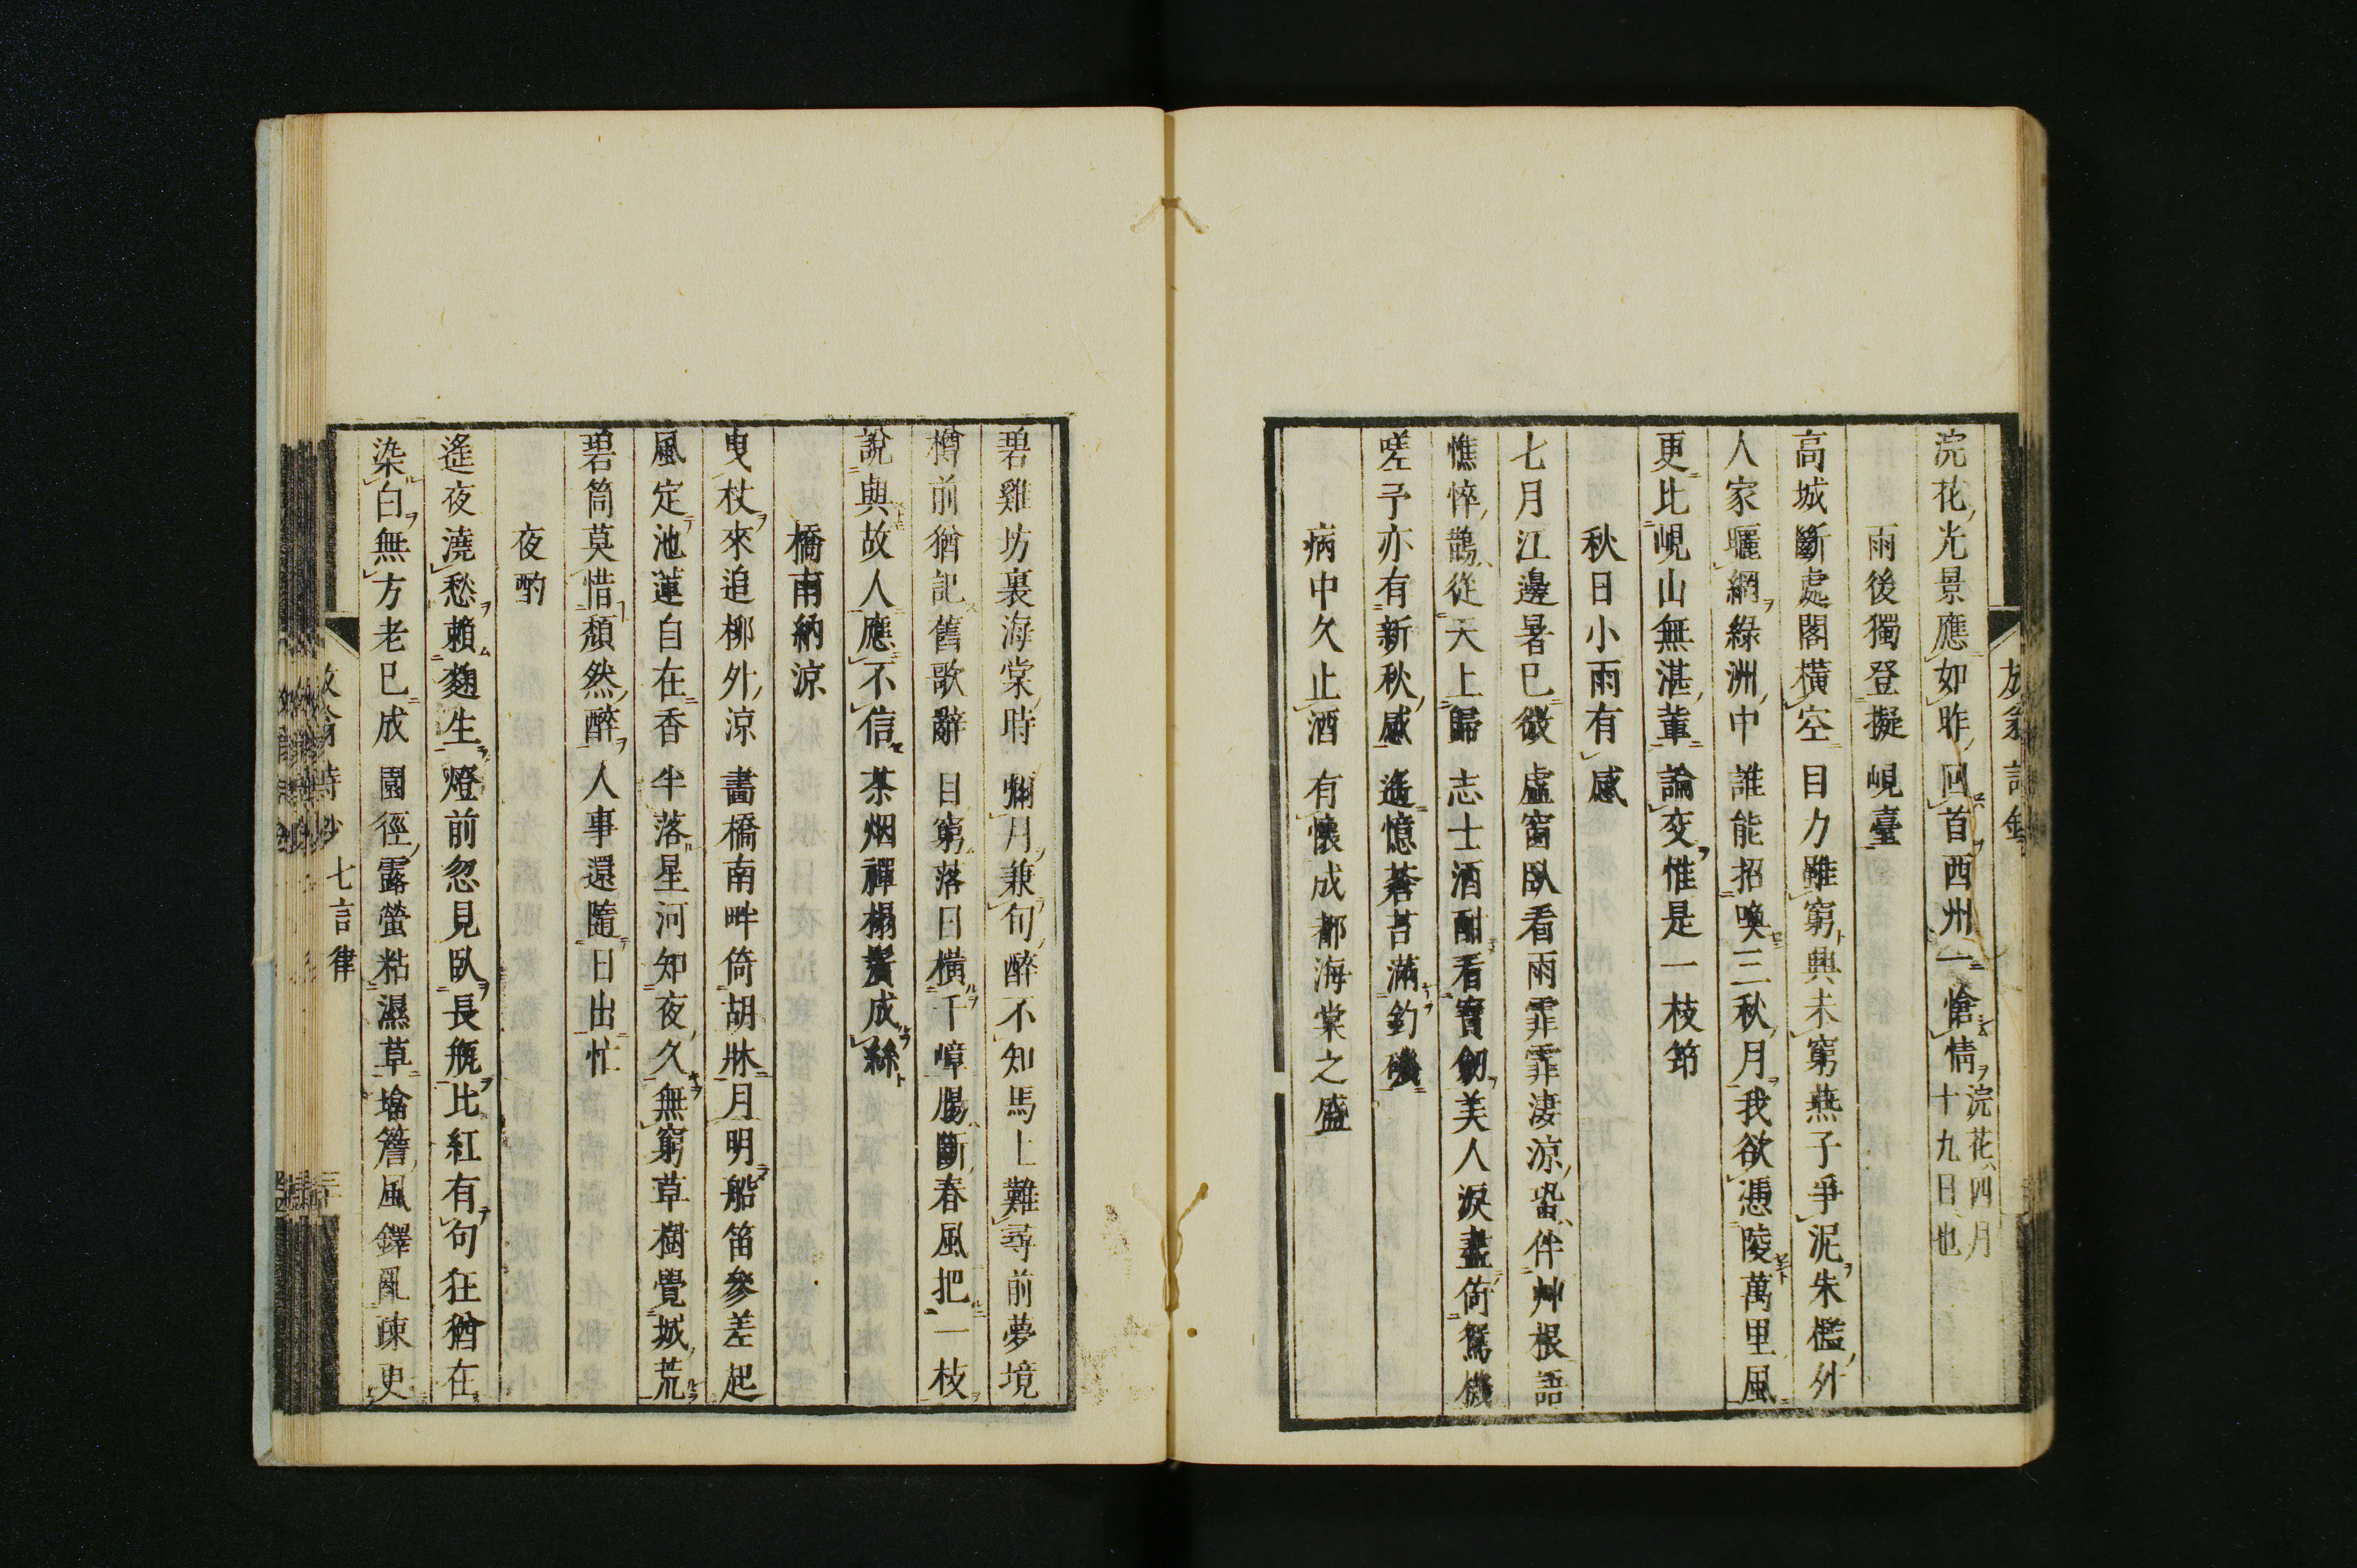 浣花光景應如昨回首西州一愴情浣花四月
十九日也
雨後獨登擬峴臺
高城斷處閣橫空目力雖窮興未窮燕子爭泥朱檻外
人家曬網綠洲中誰能招喚三秋月我欲憑陵萬里風
更比峴山無湛輩論交惟是一枝筇
秋日小雨有感
七月江邊暑已微虛窗臥看雨霏霏淒涼蛩伴艸根語
憔悴鵲從天上歸志士酒酣看寶劒美人淚盡倚鴛機
嗟予亦有新秋感遙憶蒼苔滿釣磯
病中久止酒有懷成都海棠之盛
碧雞坊裏海棠時彌月兼旬醉不知馬上難尋前夢境
樽前猶記舊歌辭目窮落日橫千嶂腸斷春風把一枝
說與故人應不信茶烟禪榻鬢成絲
橋南納涼
曳杖來追柳外涼畵橋南畔倚胡牀月明船笛參差起
風定池蓮自在香半落星河知夜久無窮草樹覺城荒
碧筒莫惜頹然醉人事還隨日出忙
夜酌
遙夜澆愁賴麴生燈前忽見臥長瓶比紅有句狂猶在
染白無方老已成園徑露螢粘濕草墖簷風鐸亂疎更
七言律